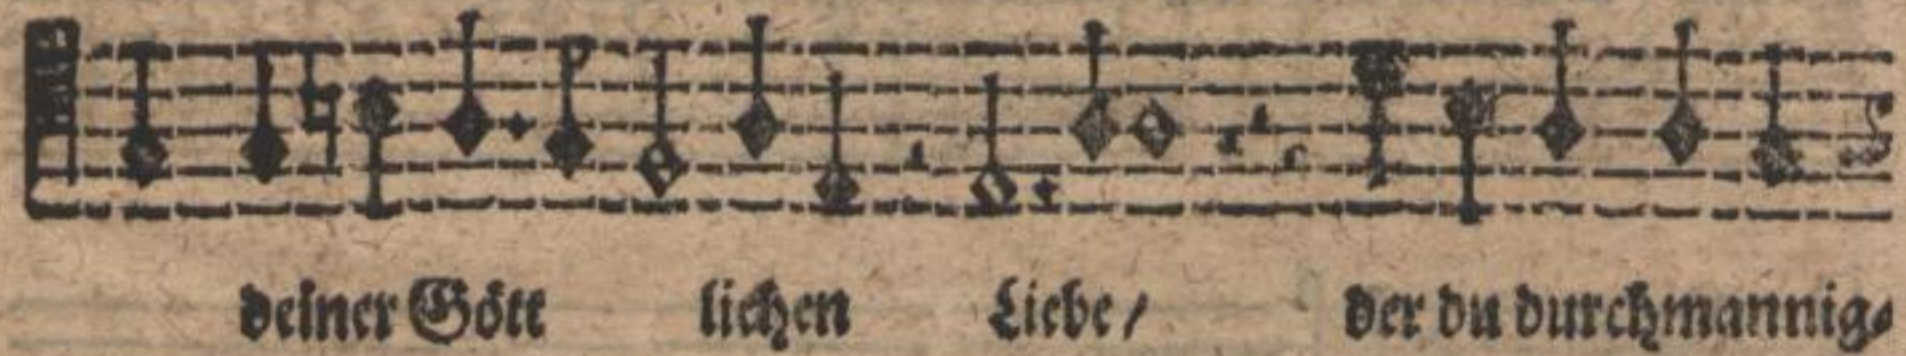 deiner Gött lichen Liebe / der du durch mannig⸗